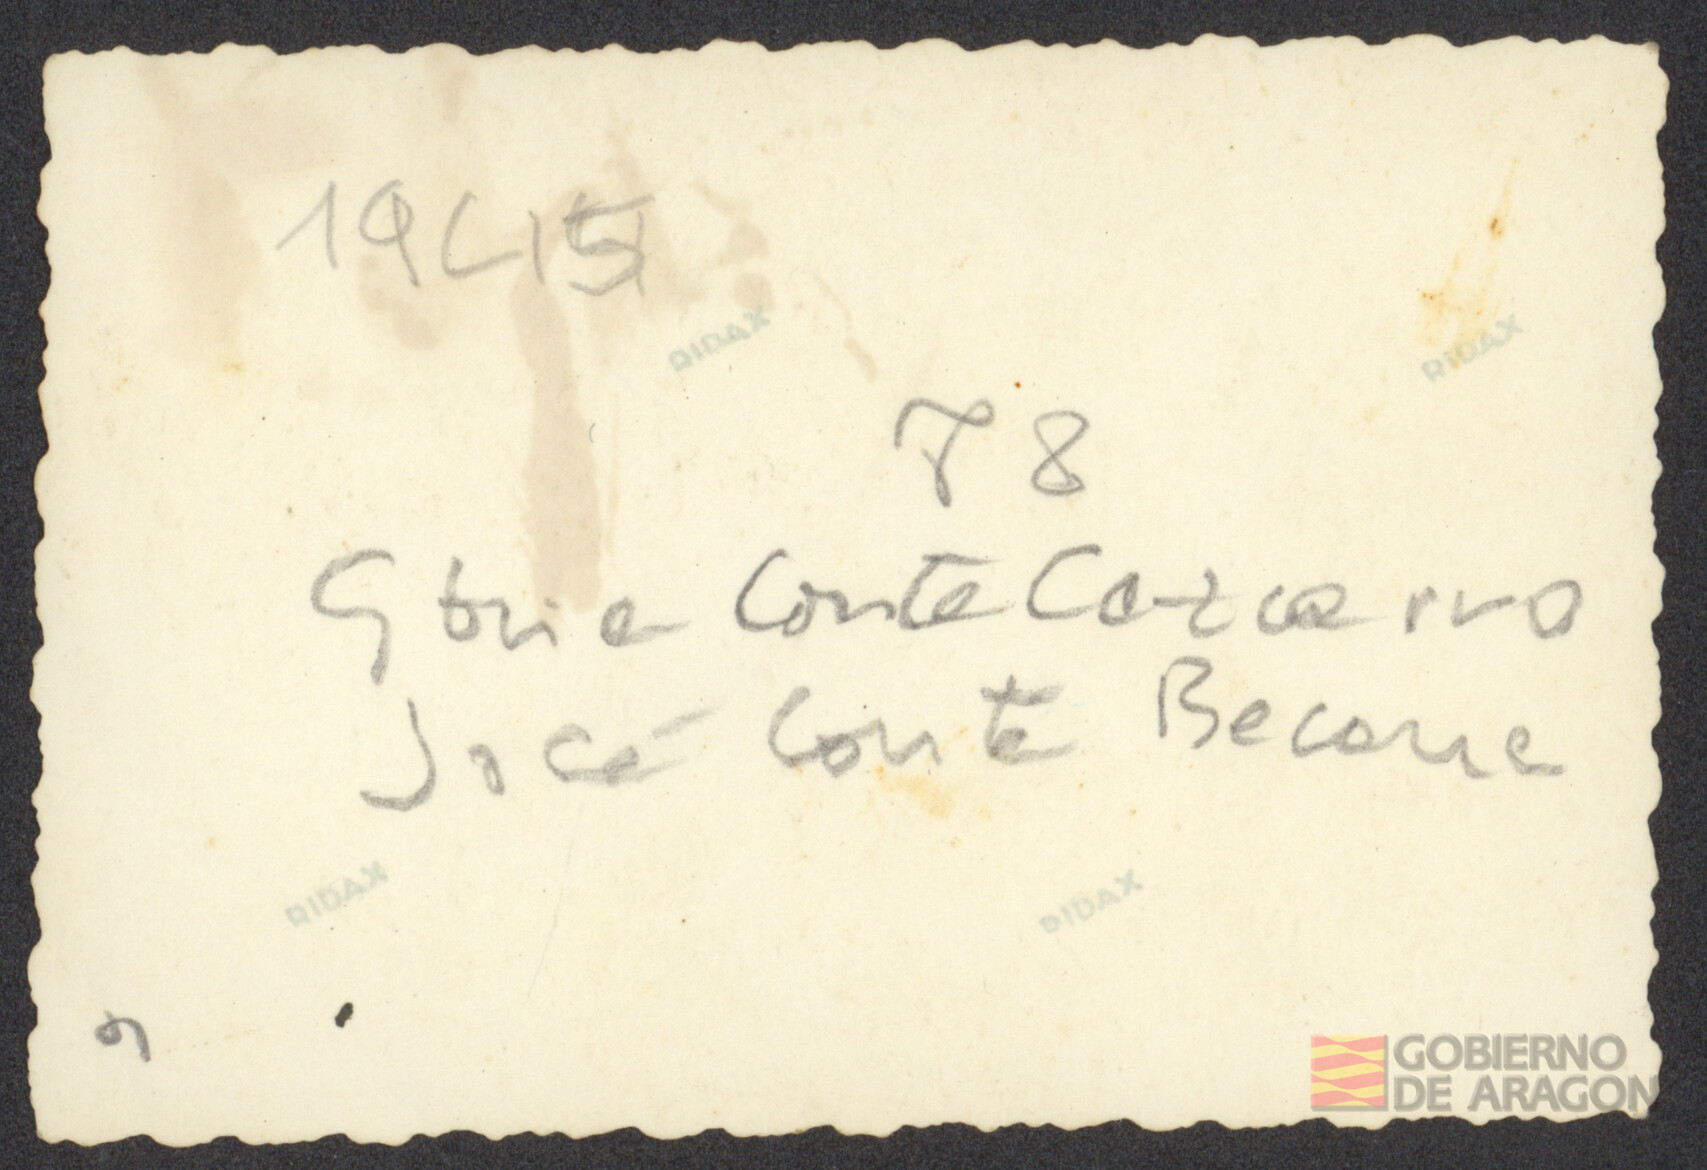 1945
RIDAX
RIDAX
78
Gloria Conte Cazcarro
José Conte Becana
RIDAX
RIDAX
9
GOBIERNO
DE ARAGON